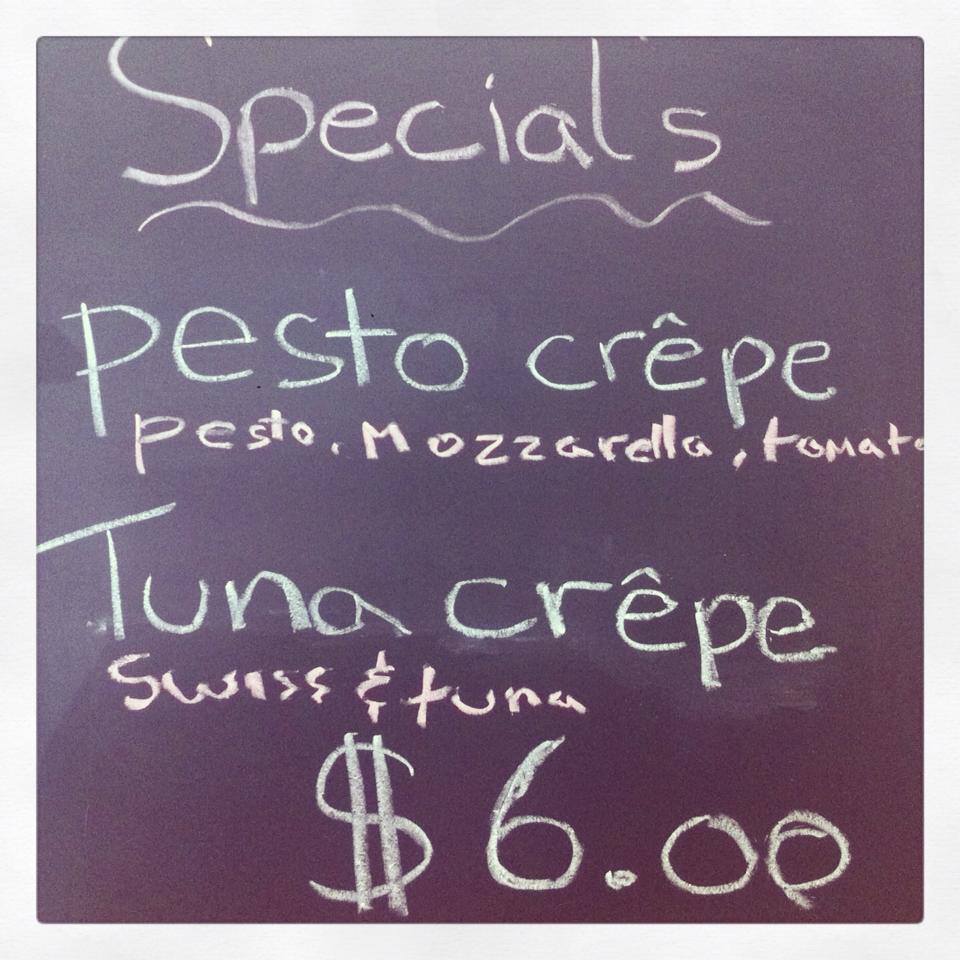 Special's
pesto crêpe
pesto, Mozzarella, tomato
Tuna crêpe
Swiss & tuna
$6.00